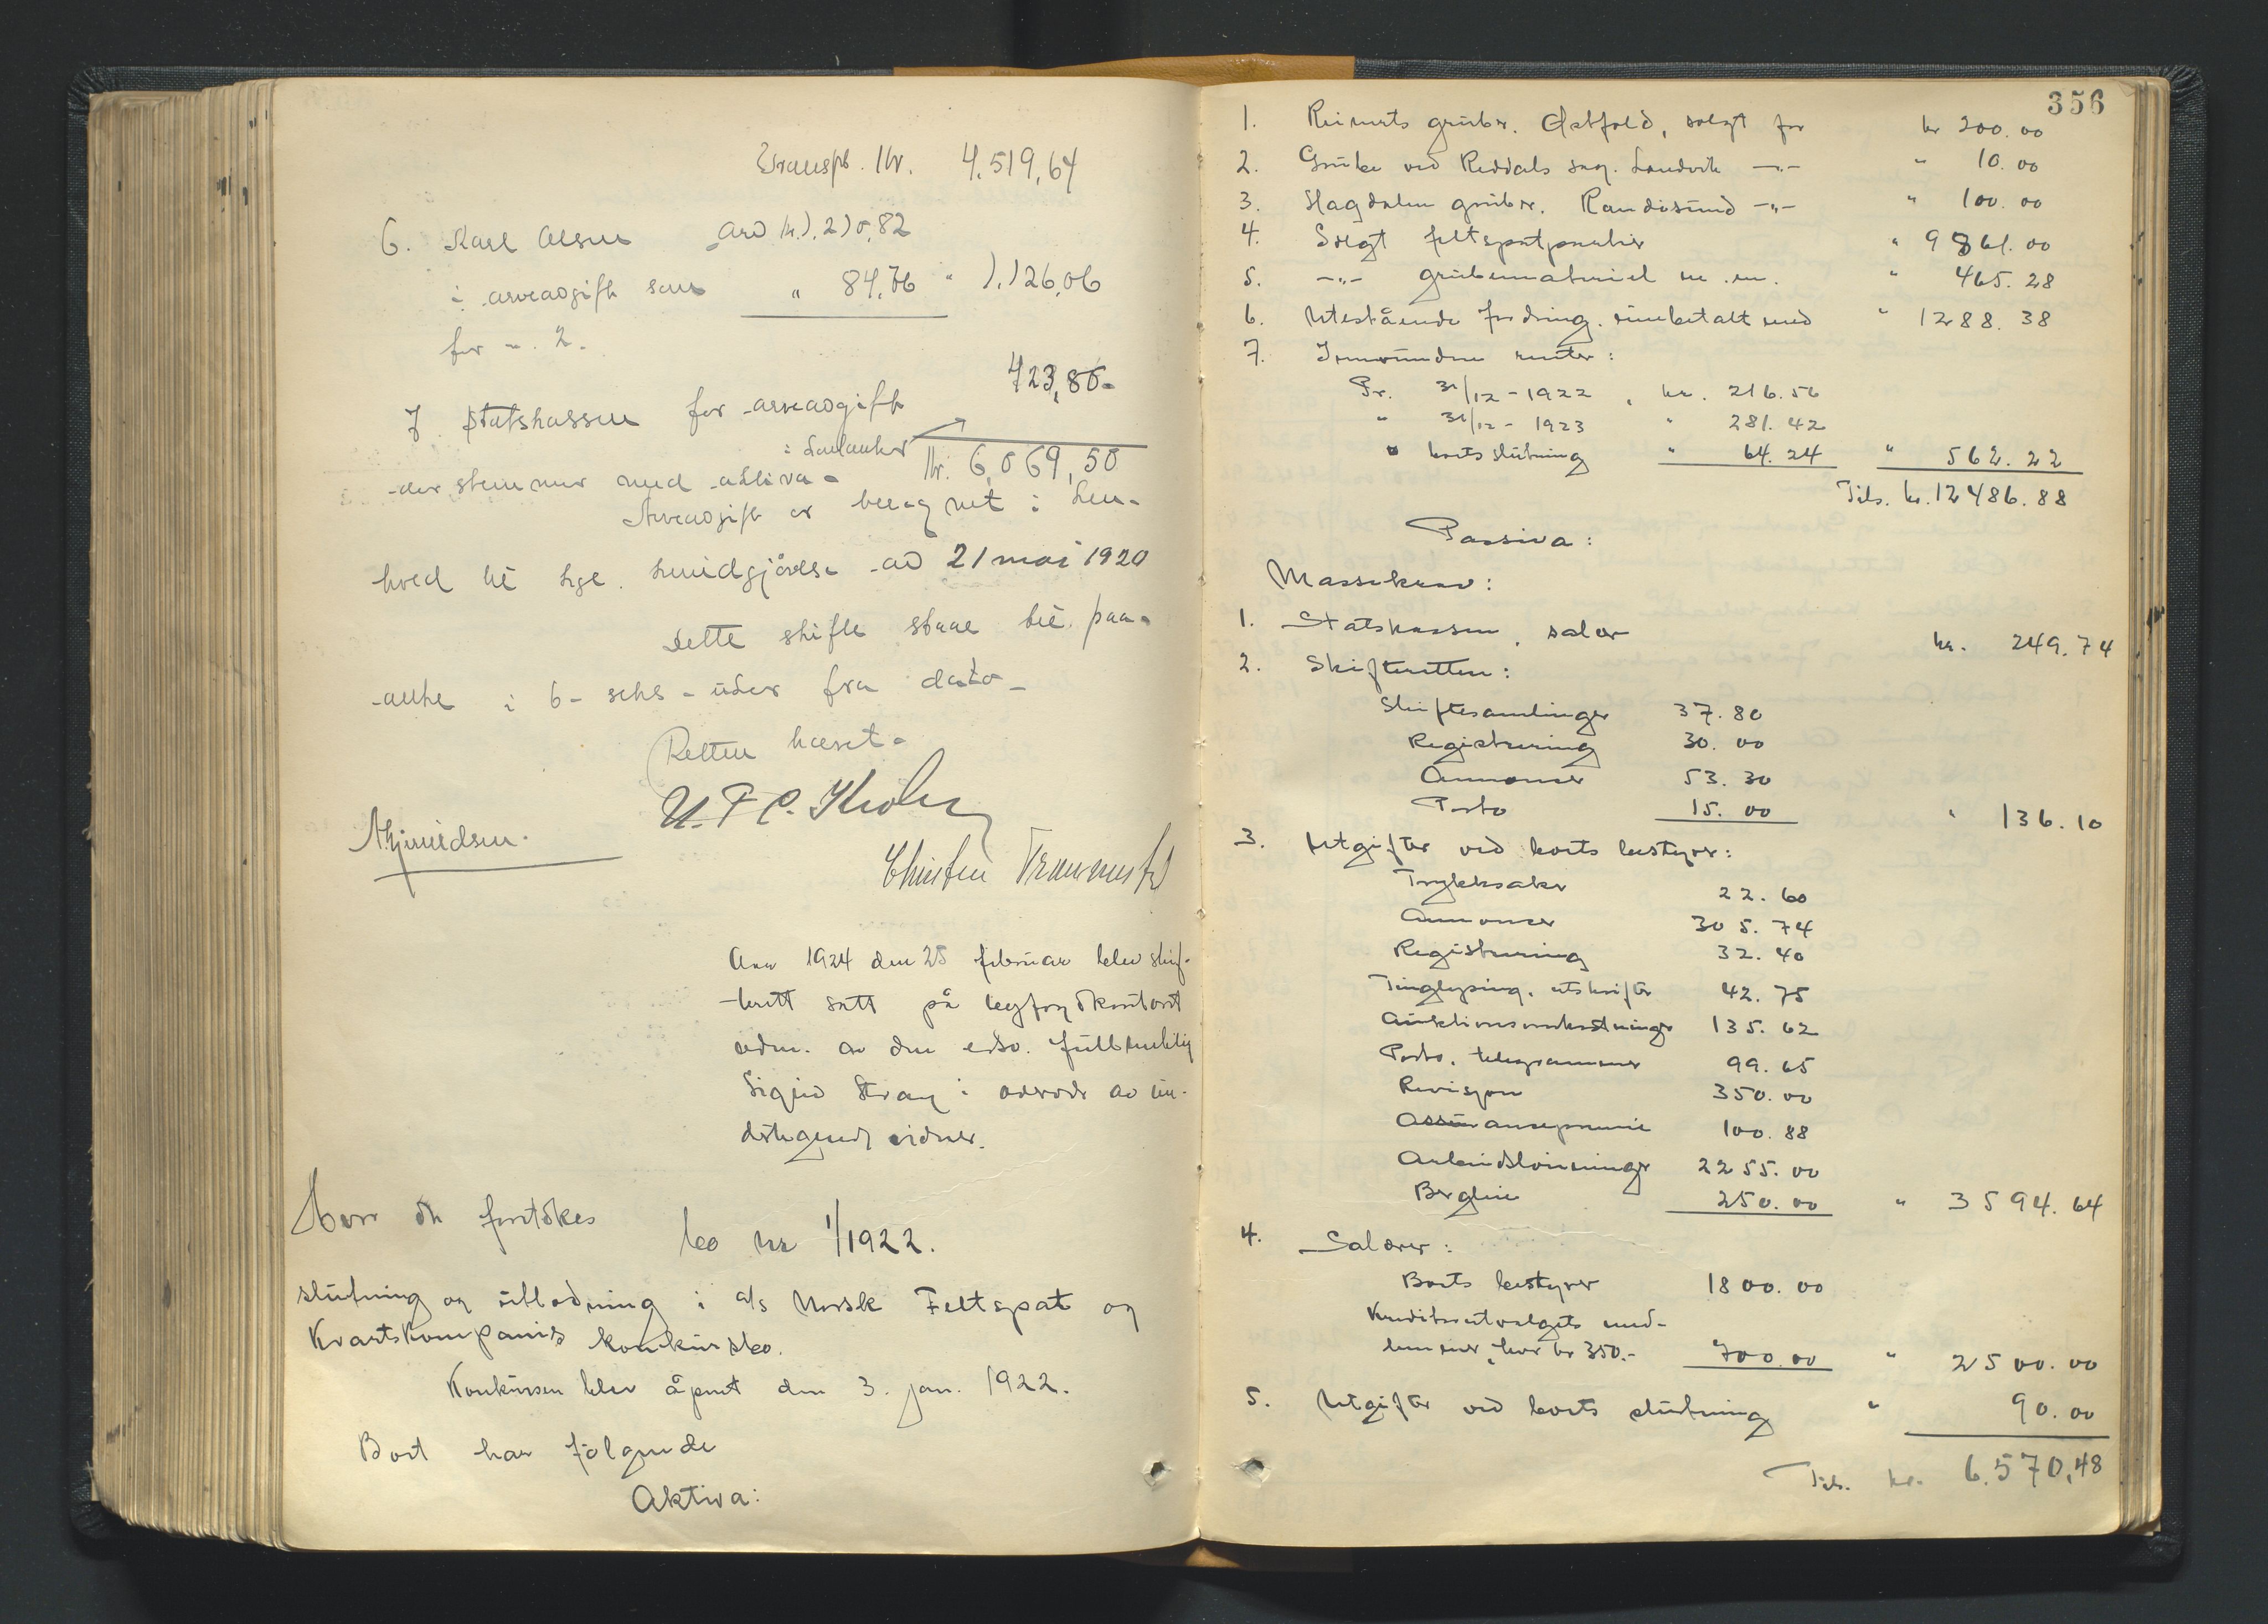 Transpt. Kr. 4,519,64
6. Karl Olsen arv kr. 1,210,82
i arveavgift som " 84,76 " 1,126,06
for n. 2.
7 Statskassen for arveavgift 423,80
i danker
der stemmer med aktiva- kr. 6,069,50
Arveavgift er beregnet i hen-
hold til kgl. kundgjørelse av 21 mai 1920
Dette skifte staar til paa-
anke i 6- seks - uker fra dato-
Retten hævet-
N. Gjeruldsen.
Aar 1924 den 25 februar blev skif-
terett satt på byfogdkontoret
adm. av den edsv. fullmektig
Sigurd Stray i overvær av un-
dertegnede vidner.
Hvor da foretokes
bo nr 1/1922.
slutning og utlodning i a/s Norsk Feltspat og
Kvartskompanis konkursbo.
Konkursen blev åpnet den 3. jan. 1922.
Boet har følgende
Aktiva:
356
1. Reinerts gruber. Østfold, solgt for kr 200.00
2. Grube ved Reddals sag. Landvik -"- " 10.00
3. Hagdalen gruber. Randøsund -"- " 100.00
4. Solgt feltspatpartier " 9861.00
5. -"- grubemateriel m.m. " 465.28
6. Utestående fordring. innbetalt med " 1288.38
7. Innvundne renter:
Pr. 31/12-1922, kr. 216.56
" 31/12-1923 " 281.42
" boets slutning " 64.24 " 562.22
Tils. kr. 12486.88
Passiva:
Massekrav:
1. Statskassen, salær kr. 249.74
2. Skifteretten:
Skiftesamlinger 37.80
Registrering 30.00
Annonser 53.30
Porto 15.00 " 136.10
3. Utgifter ved boets bestyrer:
Trykksaker 22.60
Annonser 305.74
Registrering 32.40
Tinglysing, utskrifter 42.75
Auktionsomkostninger 135.62
Porto, telegrammer 99.65
Revisjon 350.00
Assuransepremie 100.88
Arbeidslønninger 2255.00
Bergleie 250.00 " 3594.64
4. Salærer:
Boets bestyrer 1800.00
Kreditorutvalgets med-
lemmer, hver kr 350.- 700.00 " 2500.00
5. Utgifter ved boets slutning " 90.00
Tils. kr. 6.570,48